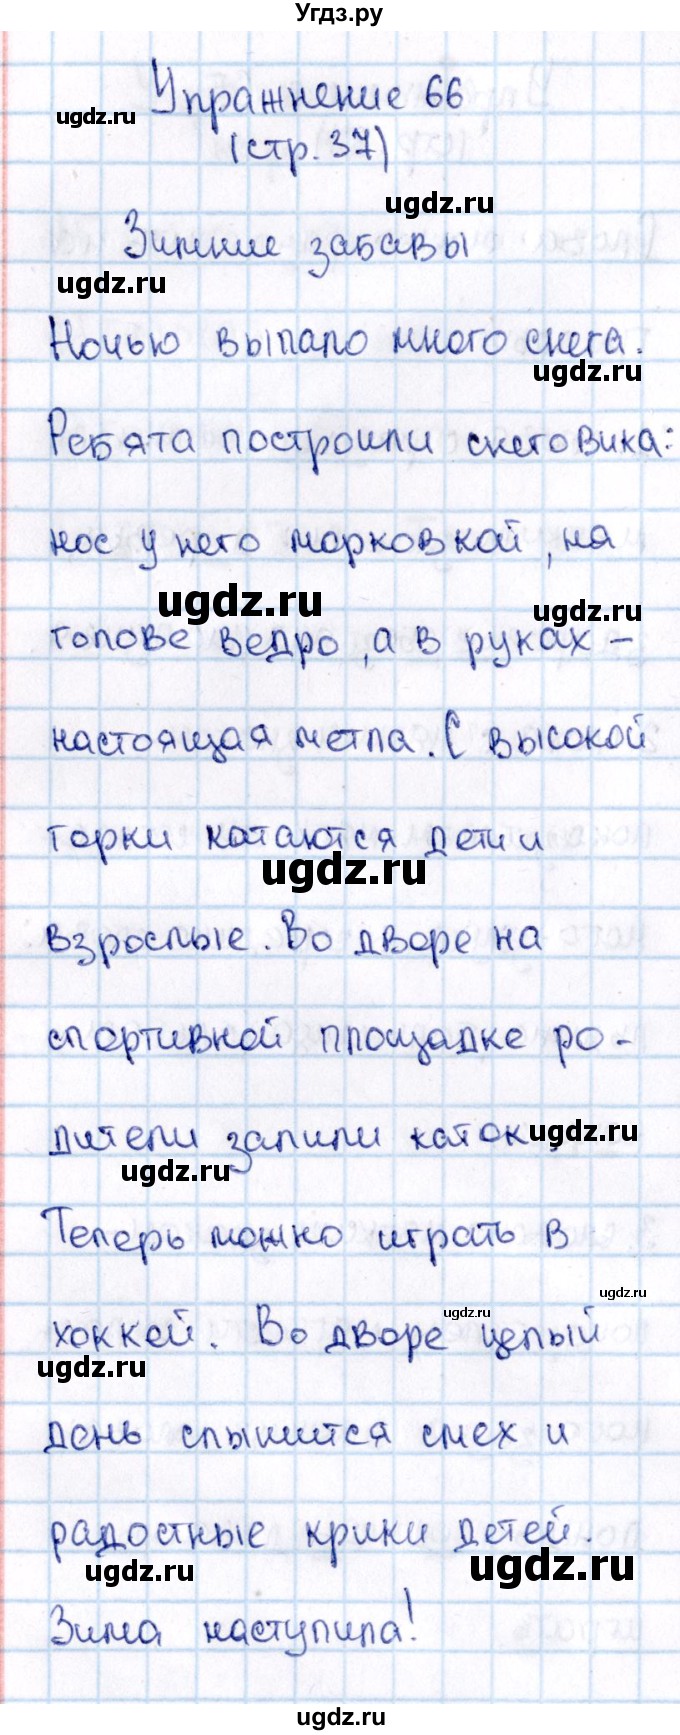 Угдз.ру
Упражнение 66
ugdz.ru
(стр. 37)
ugdz.ru
Зимние забавы
ugdz.ru
Ночью выпало много снега.
ugdz.ru
Ребята построили снеговика:
нос у него морковкой, на
ugdz.ru
ugdz.ru
голове ведро, а в руках –
настоящая метла. С высокой
горки катаются дети и
ugdz.ru
взрослые. Во дворе на
спортивной площадке ро-
дители залили каток.
ugdz.ru
ugdz.ru
Теперь можно играть в
ugdz.ru
ugdz.ru
хоккей. Во дворе целый
ugdz.ru
день слышится смех и
радостные крики детей.
ugdz.ru
ugdz.ru
Зима наступила!
ugdz.ru